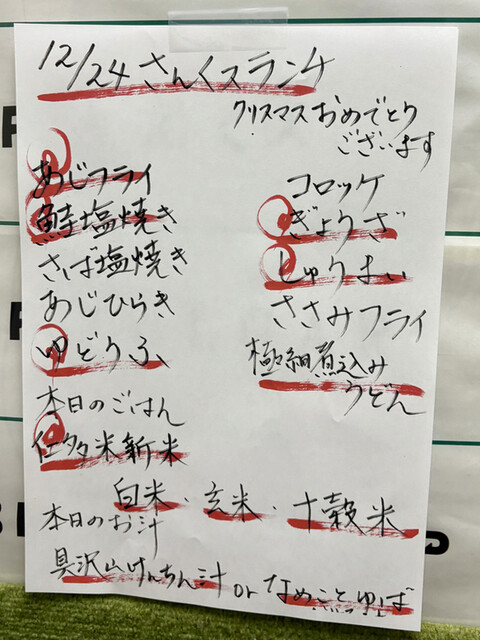 12/24 さんくスランチ
クリスマスおめでとう
ございます
あじフライ
鮭塩焼き
さば塩焼き
あじひらき
ゆどうふ
コロッケ
ぎょうざ
しゅうまい
ささみフライ
極細煮込み
うどん
本日のごはん
仁多米新米
白米・玄米・十穀米
本日のお汁
具沢山けんちん汁 or なめこ ゆば